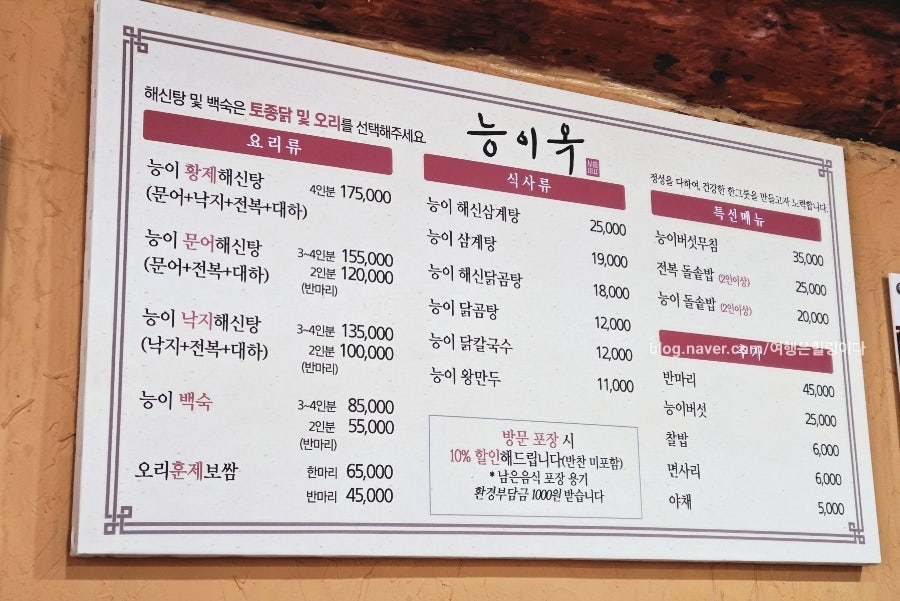 해신탕 및 백숙은 토종닭 및 오리를 선택해주세요
능이옥
요리류
능이 황제해신탕
(문어+낙지+전복+대하)
4인분 175,000
능이 문어해신탕
(문어+전복+대하)
3~4인분 155,000
2인분 120,000
(반마리)
능이 낙지해신탕
(낙지+전복+대하)
3~4인분 135,000
2인분 100,000
(반마리)
능이 백숙
3~4인분 85,000
2인분 55,000
(반마리)
오리훈제보쌈
한마리 65,000
반마리 45,000
식사류
능이 해신삼계탕 25,000
능이 삼계탕 19,000
능이 해신닭곰탕 18,000
능이 닭곰탕 12,000
능이 닭칼국수 12,000
능이 왕만두 11,000
방문 포장 시
10% 할인해드립니다(반찬 미포함)
* 남은음식 포장 용기
환경부담금 1000원 받습니다
정성을 다하여, 건강한 한그릇을 만들고자 노력합니다.
특선메뉴
능이버섯무침 35,000
전복 돌솥밥 (2인이상) 25,000
능이 돌솥밥 (2인이상) 20,000
추가
blog.naver.com/여행은힐링이다
반마리 45,000
능이버섯 25,000
찰밥 6,000
면사리 6,000
야채 5,000